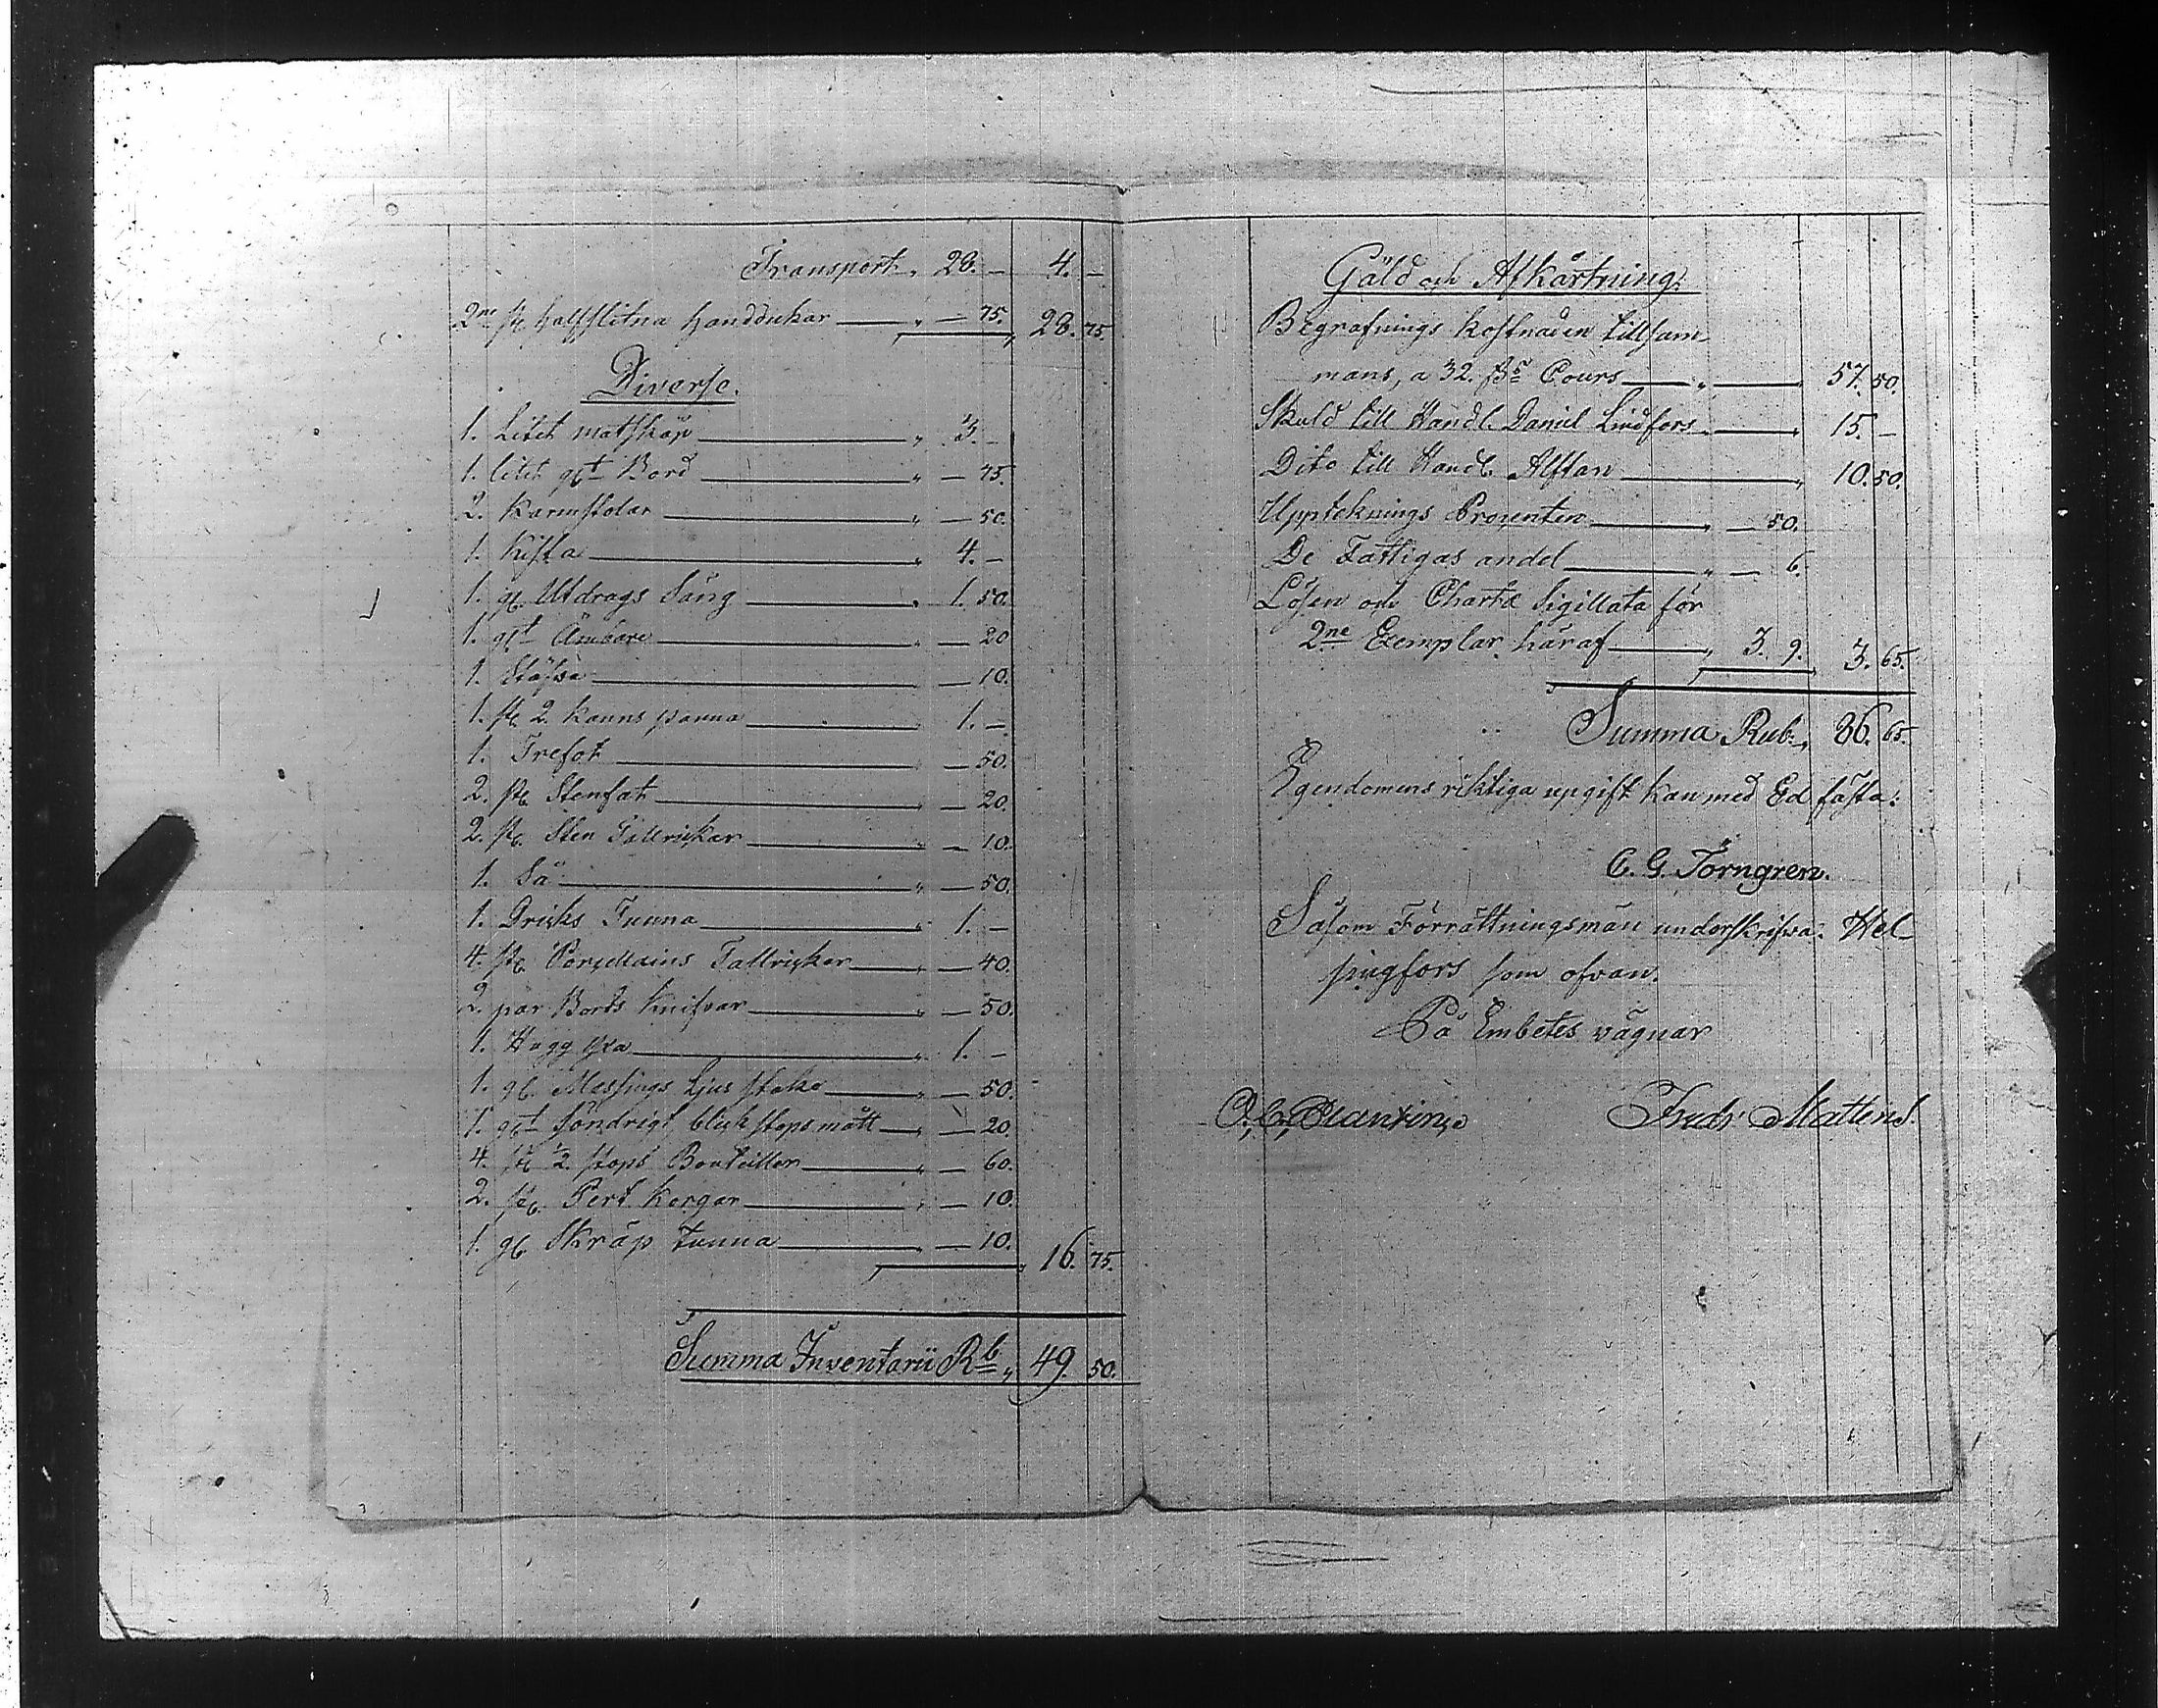 Transport „ 28. — 4. —
2ne st. halfslitna handdukar — „ — 75. 28. 75.
Diverse.
1. Litet matskåp — „ 3. —
1. litet glt Bord — „ — 75.
2. Karmstolar — „ — 50.
1. Kista — „ 4. —
1. gl. Utdrags Säng — „ 1. 50.
1. glt Ämbare — „ — 20
1. Stäfwa — — 10.
1. st. 2. Kanns panna — „ 1. —
1. Trefot — — 50.
2. st. Stenfat — „ — 20.
2. st. Sten Tallrickar — „ — 10.
1. Så — „ — 50.
1. Dricks Tunna — „ 1. —
4. st. Porcellains Tallricker — „ — 40.
2. par Bords Knifvar — „ — 50.
1. Hugg yxa — „ 1. —
1. gl. Messings Ljus stake — „ — 50.
1. glt Söndrigt bleck stops mått — „ — 20.
4. st ½ stops Bouteiller — „ — 60.
2. st. Pert Korgar — „ — 10.
1. gl. Skräp tunna — „ — 10. 16. 75.
Summa Inventarii Rb „ 49. 50.
Gäld och Afkårtning.
Begrafnings kostnaden tillsam-
mans, a 32. Cours — „ — 57. 50.
Skuld till Handl. Daniel Lindfors — „ 15. —
Dito till Handl. Alftan — „ 10. 50.
Uppteknings Procenten — „ — 50.
De Fattigas andel — „ — 6.
Lösen och Charta Sigillata för
2ne Exemplar häraf — „ 3. 9. 3. 65.
Summa Rub. „ 86. 65.
Egendomens riktiga upgift kan med Ed fästa:
C. G. Törngren.
Såsom Förrättningsmän underskrifwa. Hel-
singfors som ofvan.
På Embetes vägnar
O. C. Plantin Fredr Mattens